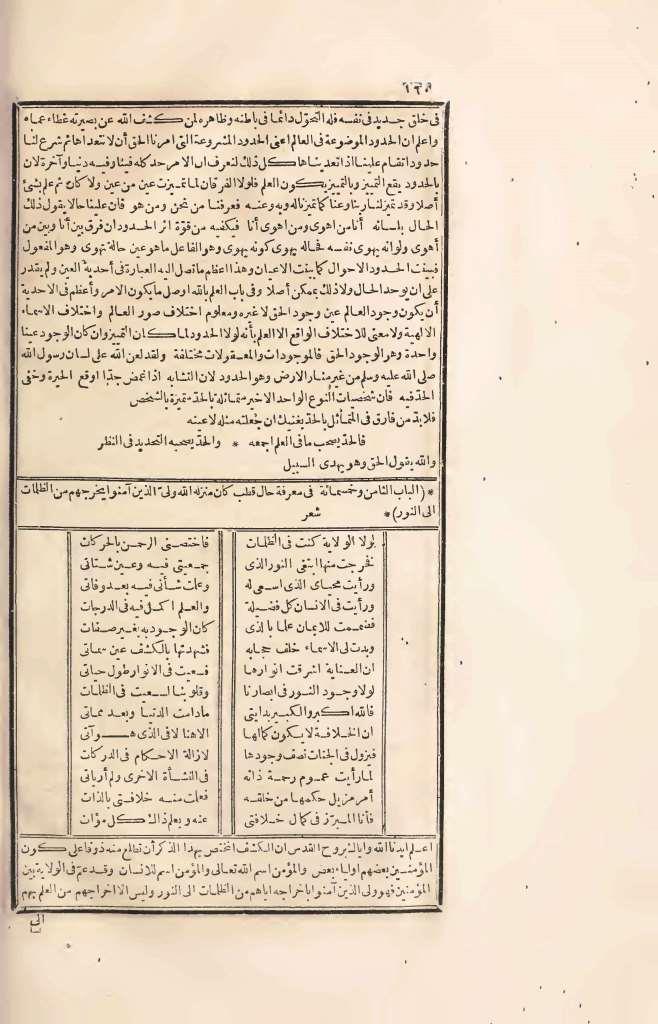 ١٣٨
فى خلق جديد فى نفسه فله التحول دائما فى باطنه وظاهره لمن كشف الله عن بصيرته غطاء عماه
واعلم ان الحدود الموضوعة فى العالم اعنى الحدود المشروعة التى امرنا الحق أن لا نتعداها ثم شرع لنا
حدودا تقام علينا اذا تعديناها كل ذلك لنعرف ان الامر حد كله فينا وفيه دنيا وآخرة لان
بالحدود يقع التمييز وبالتمييز يكون العلم فلولا الفرقان لما تميزت عين من عين ولا كان ثم علم بشئ
أصلا وقد تميز لنا ربنا وعنا كما تميزنا له وبه وعنه فعرفنا من نحن ومن هو فان علينا حالا يقول ذلك
الحال بلسانه أنا من اهوى ومن اهوى أنا فيكفيه من قوة اثر الحدود ان فرق بين أنا وبين من
أهوى ولو انه يهوى نفسه فحاله يهوى كونه يهوى وهو الفاعل ما هو عين حالة تهوى وهو المفعول
فبينت الحدود الاحوال كما بينت الاعيان وهذا اعظم ما تصل اليه العبارة فى أحدية العين ولم يقدر
على ان يوحد الحال ولا ذلك بممكن أصلا وفى باب العلم بالله اوصل ما يكون الامر وأعظم فى الاحدية
أن يكون وجود العالم عين وجود الحق لا غيره ومعلوم اختلاف صور العالم واختلاف الاسماء
الالهية ولا معنى للاختلاف الواقع الا العلم بأنه لولا الحدود لما كان التمييز وان كان الوجود عينا
واحدة وهو الوجود الحق فالموجودات والمعقولات مختلفة ولقد لعن الله على لسان رسول الله
صلى الله عليه وسلم من غير منار الارض وهو الحدود لان التشابه اذا غمض جدا اوقع الحيرة وخفى
الحد فيه فان شخصيات النوع الواحد الاخير متماثلة بالحد متميزة بالشخص
فلا بد من فارق فى المتماثل بالحد يغنيك ان جعلته مثله لا عينه
فالحد يصحب ما فى العلم اجمعه * والحد يصحبه التحديد فى النظر
والله يقول الحق وهو يهدى السبيل
* (الباب الثامن وخمسمائة فى معرفة حال قطب كان منزله الله ولى الذين آمنوا يخرجهم من الظلمات
الى النور) * شعر
لولا الولاية كنت فى الظلمات فاختصنى الرحمن بالحركات
فخرجت منها ابتغى النور الذى جمعيتى فيه وعين شتاتى
ورأيت محياى الذى اسعى له وعلت شأنى فيه بعد وفاتى
ورأيت فى الانسان كل فضيلة والعلم اكمل فيه فى الدرجات
فضممت للايمان علما بالذى كان الوجود به بغير صفات
وبدت لى الاسماء خلف حجابه فشهدتها بالكشف عين سماتى
ان العناية اشرقت انوارها فسعيت فى الانوار طول حياتى
لولا وجود النور فى ابصارنا وقلوبنا لسعيت فى الظلمات
فالله اكبر والكبير بدايتى ما دامت الدنيا وبعد مماتى
ان الخلافة لا يكون كمالها الا هنا لا فى الذى هو آتى
فيزول فى الجنات نصف وجودها لازالة الاحكام فى الدركات
لما رأيت عموم رحمة ذاته فى النشأة الاخرى ولم أر ياتى
أمر مزيل حكمها من خلقه فعلمت منه خلافتى بالذات
فأنا المبرز فى كمال خلافتى عنه ويعلم ذاك كل موات
اعلم ايدنا الله واياك بروح القدس ان الكشف المختص بهذا الذكر أن تطلع منه ذوقا على كون
المؤمنين بعضهم اولياء بعض والمؤمن اسم الله تعالى والمؤمن اسم للانسان وقد عم فى الولاية بين
المؤمنين فهو ولى الذين آمنوا باخراجه اياهم من الظلمات الى النور وليس الا اخراجهم من العلم بهم
الى